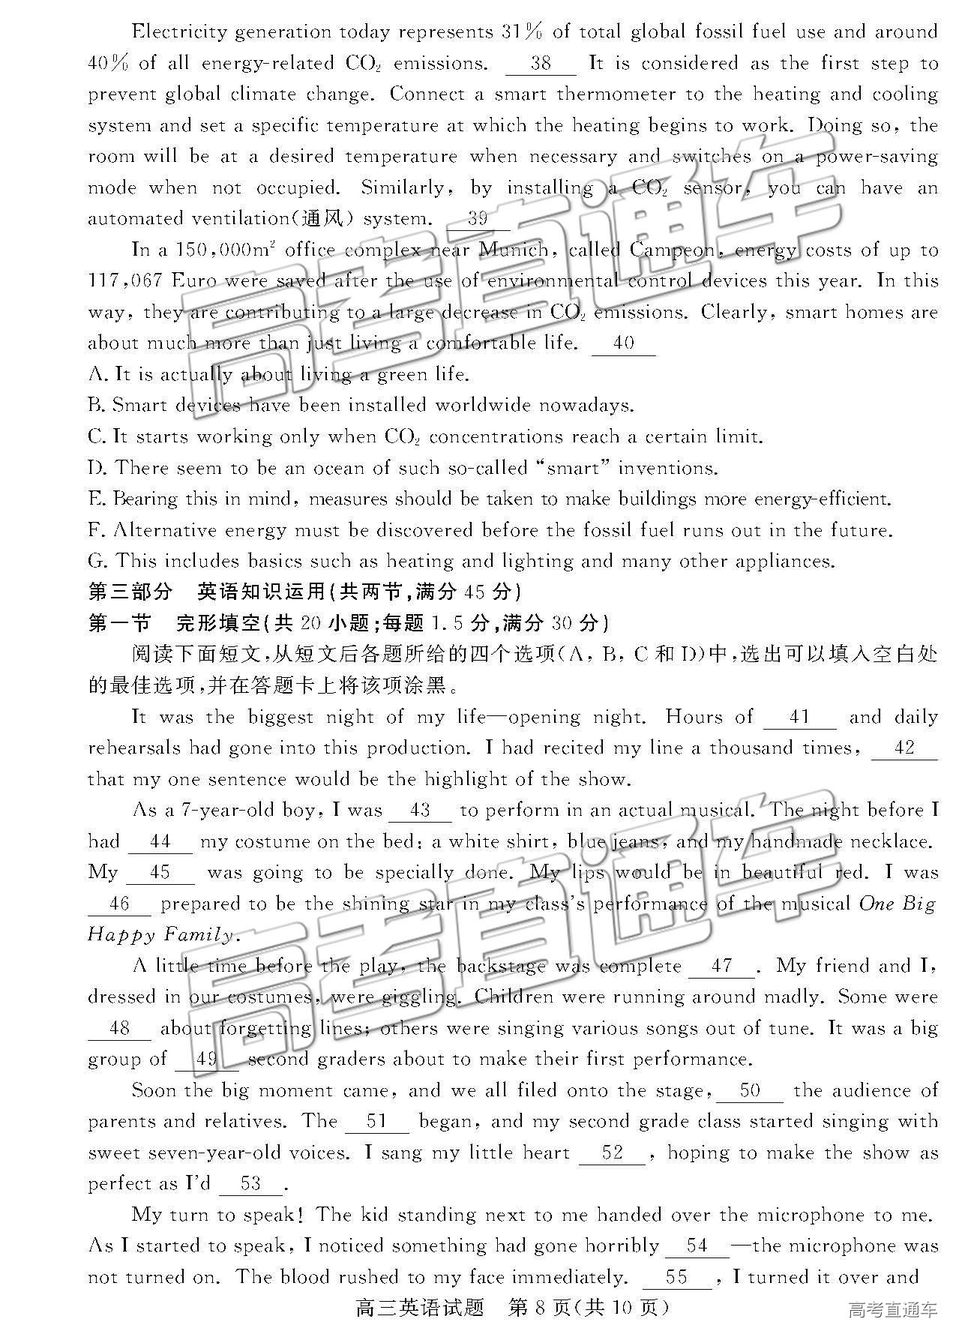 Electricity generation today represents 31% of total global fossil fuel use and around
40% of all energy-related CO₂ emissions. 38 It is considered as the first step to
prevent global climate change. Connect a smart thermometer to the heating and cooling
system and set a specific temperature at which the heating begins to work. Doing so, the
room will be at a desired temperature when necessary and switches on a power-saving
mode when not occupied. Similarly, by installing a CO₂ sensor, you can have an
automated ventilation(通风) system. 39
In a 150,000m² office complex near Munich, called Campeon, energy costs of up to
117,067 Euro were saved after the use of environmental-control devices this year. In this
way, they are contributing to a large decrease in CO₂ emissions. Clearly, smart homes are
about much more than just living a comfortable life. 40
A. It is actually about living a green life.
B. Smart devices have been installed worldwide nowadays.
C. It starts working only when CO₂ concentrations reach a certain limit.
D. There seem to be an ocean of such so-called “smart” inventions.
E. Bearing this in mind, measures should be taken to make buildings more energy-efficient.
F. Alternative energy must be discovered before the fossil fuel runs out in the future.
G. This includes basics such as heating and lighting and many other appliances.
第三部分 英语知识运用(共两节,满分45分)
第一节 完形填空(共20小题;每题1.5分,满分30分)
阅读下面短文,从短文后各题所给的四个选项(A, B, C和D)中,选出可以填入空白处
的最佳选项,并在答题卡上将该项涂黑。
It was the biggest night of my life—opening night. Hours of 41 and daily
rehearsals had gone into this production. I had recited my line a thousand times, 42
that my one sentence would be the highlight of the show.
As a 7-year-old boy, I was 43 to perform in an actual musical. The night before I
had 44 my costume on the bed: a white shirt, blue jeans, and my handmade necklace.
My 45 was going to be specially done. My lips would be in beautiful red. I was
46 prepared to be the shining star in my class's performance of the musical One Big
Happy Family.
A little time before the play, the backstage was complete 47. My friend and I,
dressed in our costumes, were giggling. Children were running around madly. Some were
48 about forgetting lines; others were singing various songs out of tune. It was a big
group of 49 second graders about to make their first performance.
Soon the big moment came, and we all filed onto the stage, 50 the audience of
parents and relatives. The 51 began, and my second grade class started singing with
sweet seven-year-old voices. I sang my little heart 52, hoping to make the show as
perfect as I'd 53.
My turn to speak! The kid standing next to me handed over the microphone to me.
As I started to speak, I noticed something had gone horribly 54—the microphone was
not turned on. The blood rushed to my face immediately. 55, I turned it over and
高三英语试题 第8页(共10页)
高考直通车
高考直通车
高考直通车